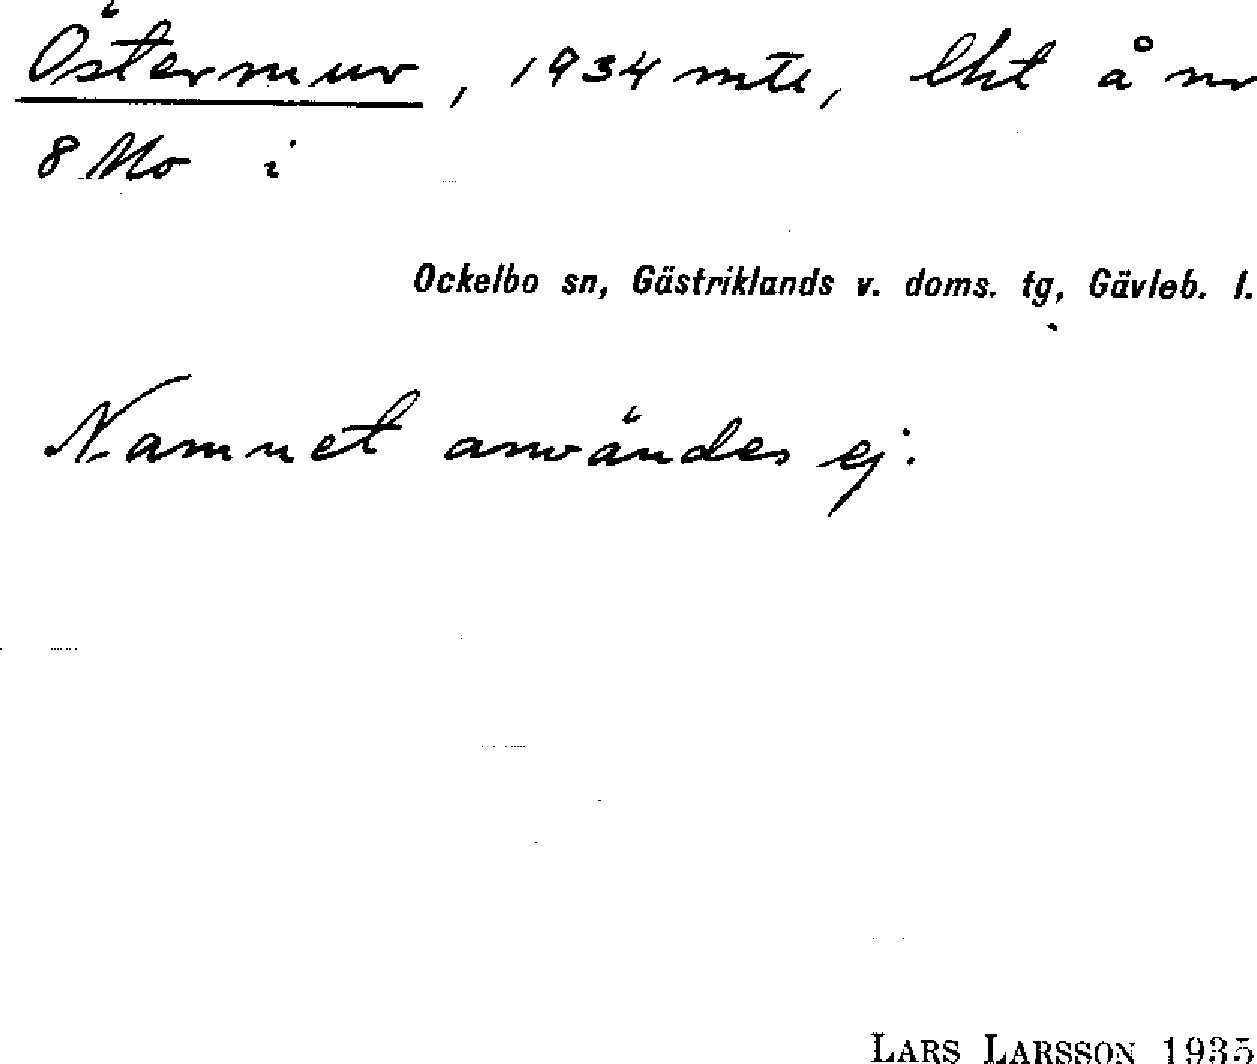 Östermur, 1934 mtl, lht å nr
8 Mo i
Ockelbo sn, Gästriklands v. doms. tg, Gävleb. l.
Namnet användes ej.
LARS LARSSON 1935